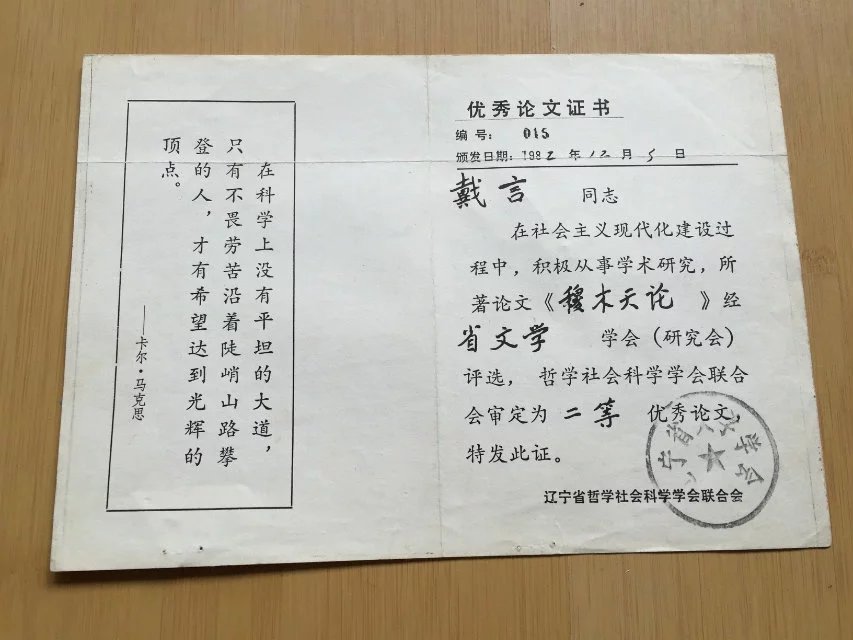 在科学上没有平坦的大道，
只有不畏劳苦沿着陡峭山路攀
登的人，才有希望达到光辉的
顶点。
——卡尔·马克思
优秀论文证书
编号： 015
颁发日期：1982 年 12 月 5 日
戴言 同志
在社会主义现代化建设过
程中，积极从事学术研究，所
著论文《穆木天论》经
省文学 学会（研究会）
评选， 哲学社会科学学会联合
会审定为 二等 优秀论文，
特发此证。
辽宁省哲学社会科学学会联合会